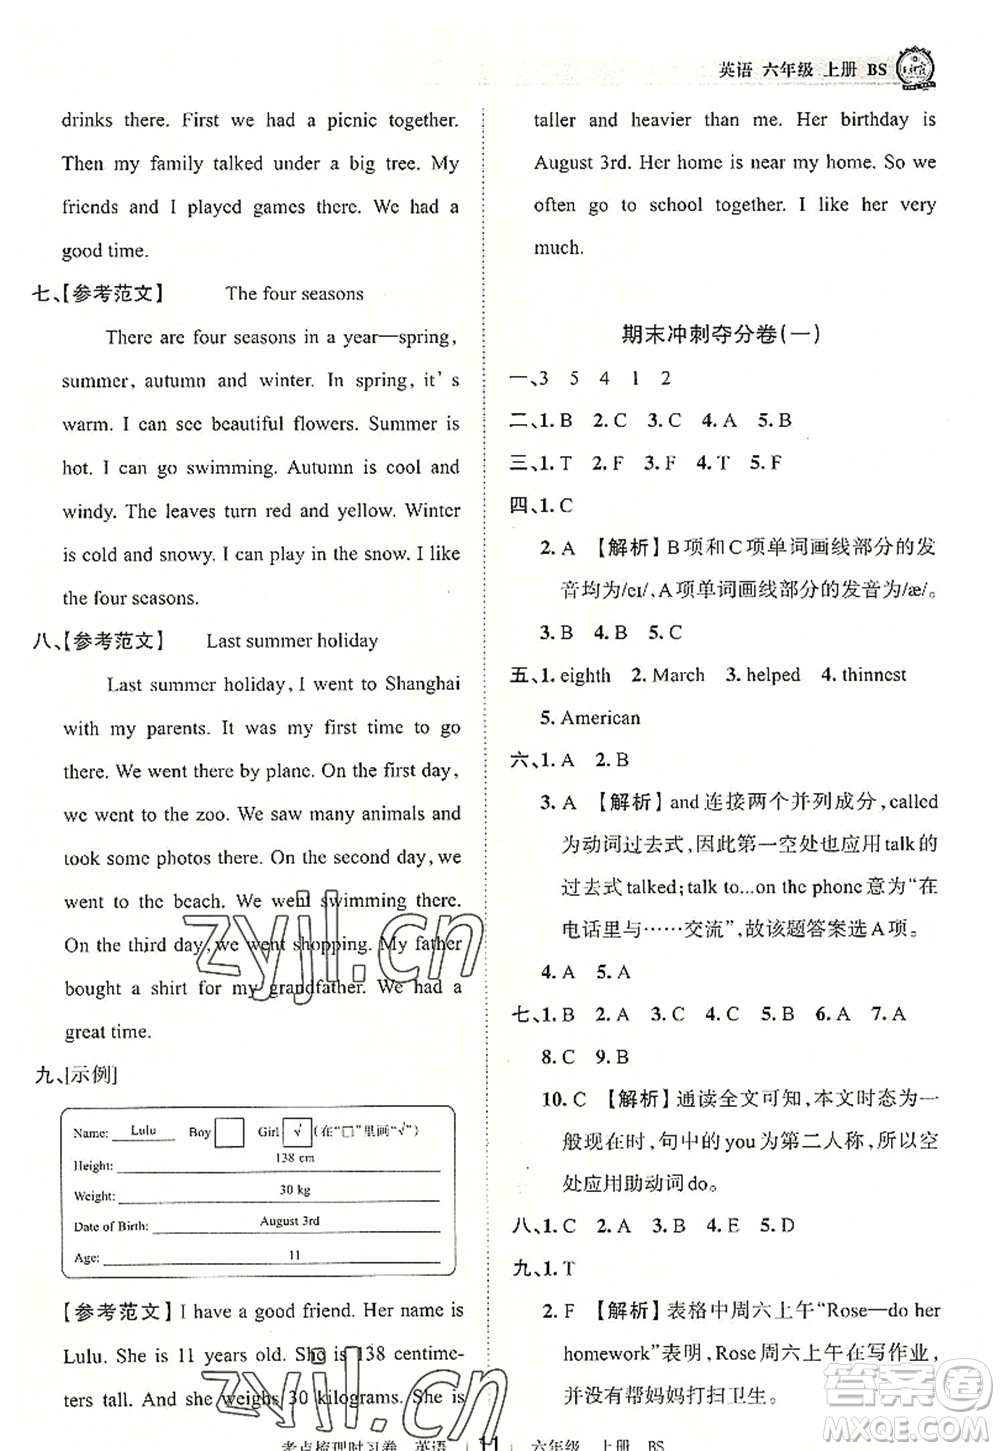 英语 六年级 上册 BS
drinks there. First we had a picnic together.
Then my family talked under a big tree. My
friends and I played games there. We had a
good time.
七、【参考范文】 The four seasons
There are four seasons in a year—spring,
summer, autumn and winter. In spring, it's
warm. I can see beautiful flowers. Summer is
hot. I can go swimming. Autumn is cool and
windy. The leaves turn red and orange. Winter
is cold and snowy. I can play in the snow. I like
the four seasons.
八、【参考范文】 Last summer holiday
Last summer holiday, I went to Shanghai
with my parents. It was my first time to go
there. We went there by plane. On the first day,
we went to the zoo. We saw many animals and
took some photos there. On the second day, we
went to the beach. We went swimming there.
On the third day, we went shopping. My father
bought a shirt for my grandfather. We had a
great time.
九、[示例]
Name: Lulu Boy □ Girl √ (在“□”里画“√”)
Height: 138 cm
Weight: 30 kg
Date of Birth: August 3rd
Age: 11
【参考范文】I have a good friend. Her name is
Lulu. She is 11 years old. She is 138 centime-
ters tall. And she weighs 30 kilograms. She is
taller and heavier than me. Her birthday is
August 3rd. Her home is near my home. So we
often go to school together. I like her very
much.
期末冲刺夺分卷(一)
一、3 5 4 1 2
二、1. B 2. B 3. C 4. A 5. A
三、1. T 2. F 3. F 4. T 5. F
四、1. C
2. A 【解析】B项和C项单词画线部分的发
音均为/eɪ/，A项单词画线部分的发音为/æ/。
3. B 4. B 5. C
五、1. eighth 2. March 3. helped 4. thinnest
5. American
六、1. A 2. B
3. A 【解析】and连接两个并列成分，called
为动词过去式，因此第一空处也应用talk的
过去式talked；talk to...on the phone意为“在
电话里与……交流”，故该题答案选A项。
4. A 5. A
七、1. B 2. A 3. B 4. C 5. B 6. A 7. A
8. C 9. B
10. C 【解析】通读全文可知，本文时态为一
般现在时，句中的you为第二人称，所以空
处应用助动词do。
八、1. C 2. A 3. B 4. E 5. D
九、1. T
2. F 【解析】表格中周六上午“Rose—do her
homework”表明，Rose周六上午在写作业，
并没有帮妈妈打扫卫生。
考点梳理时习卷 英语 11 六年级 上册 BS
zyjl.cn
zyjl.cn
答案圈
MXQE.COM